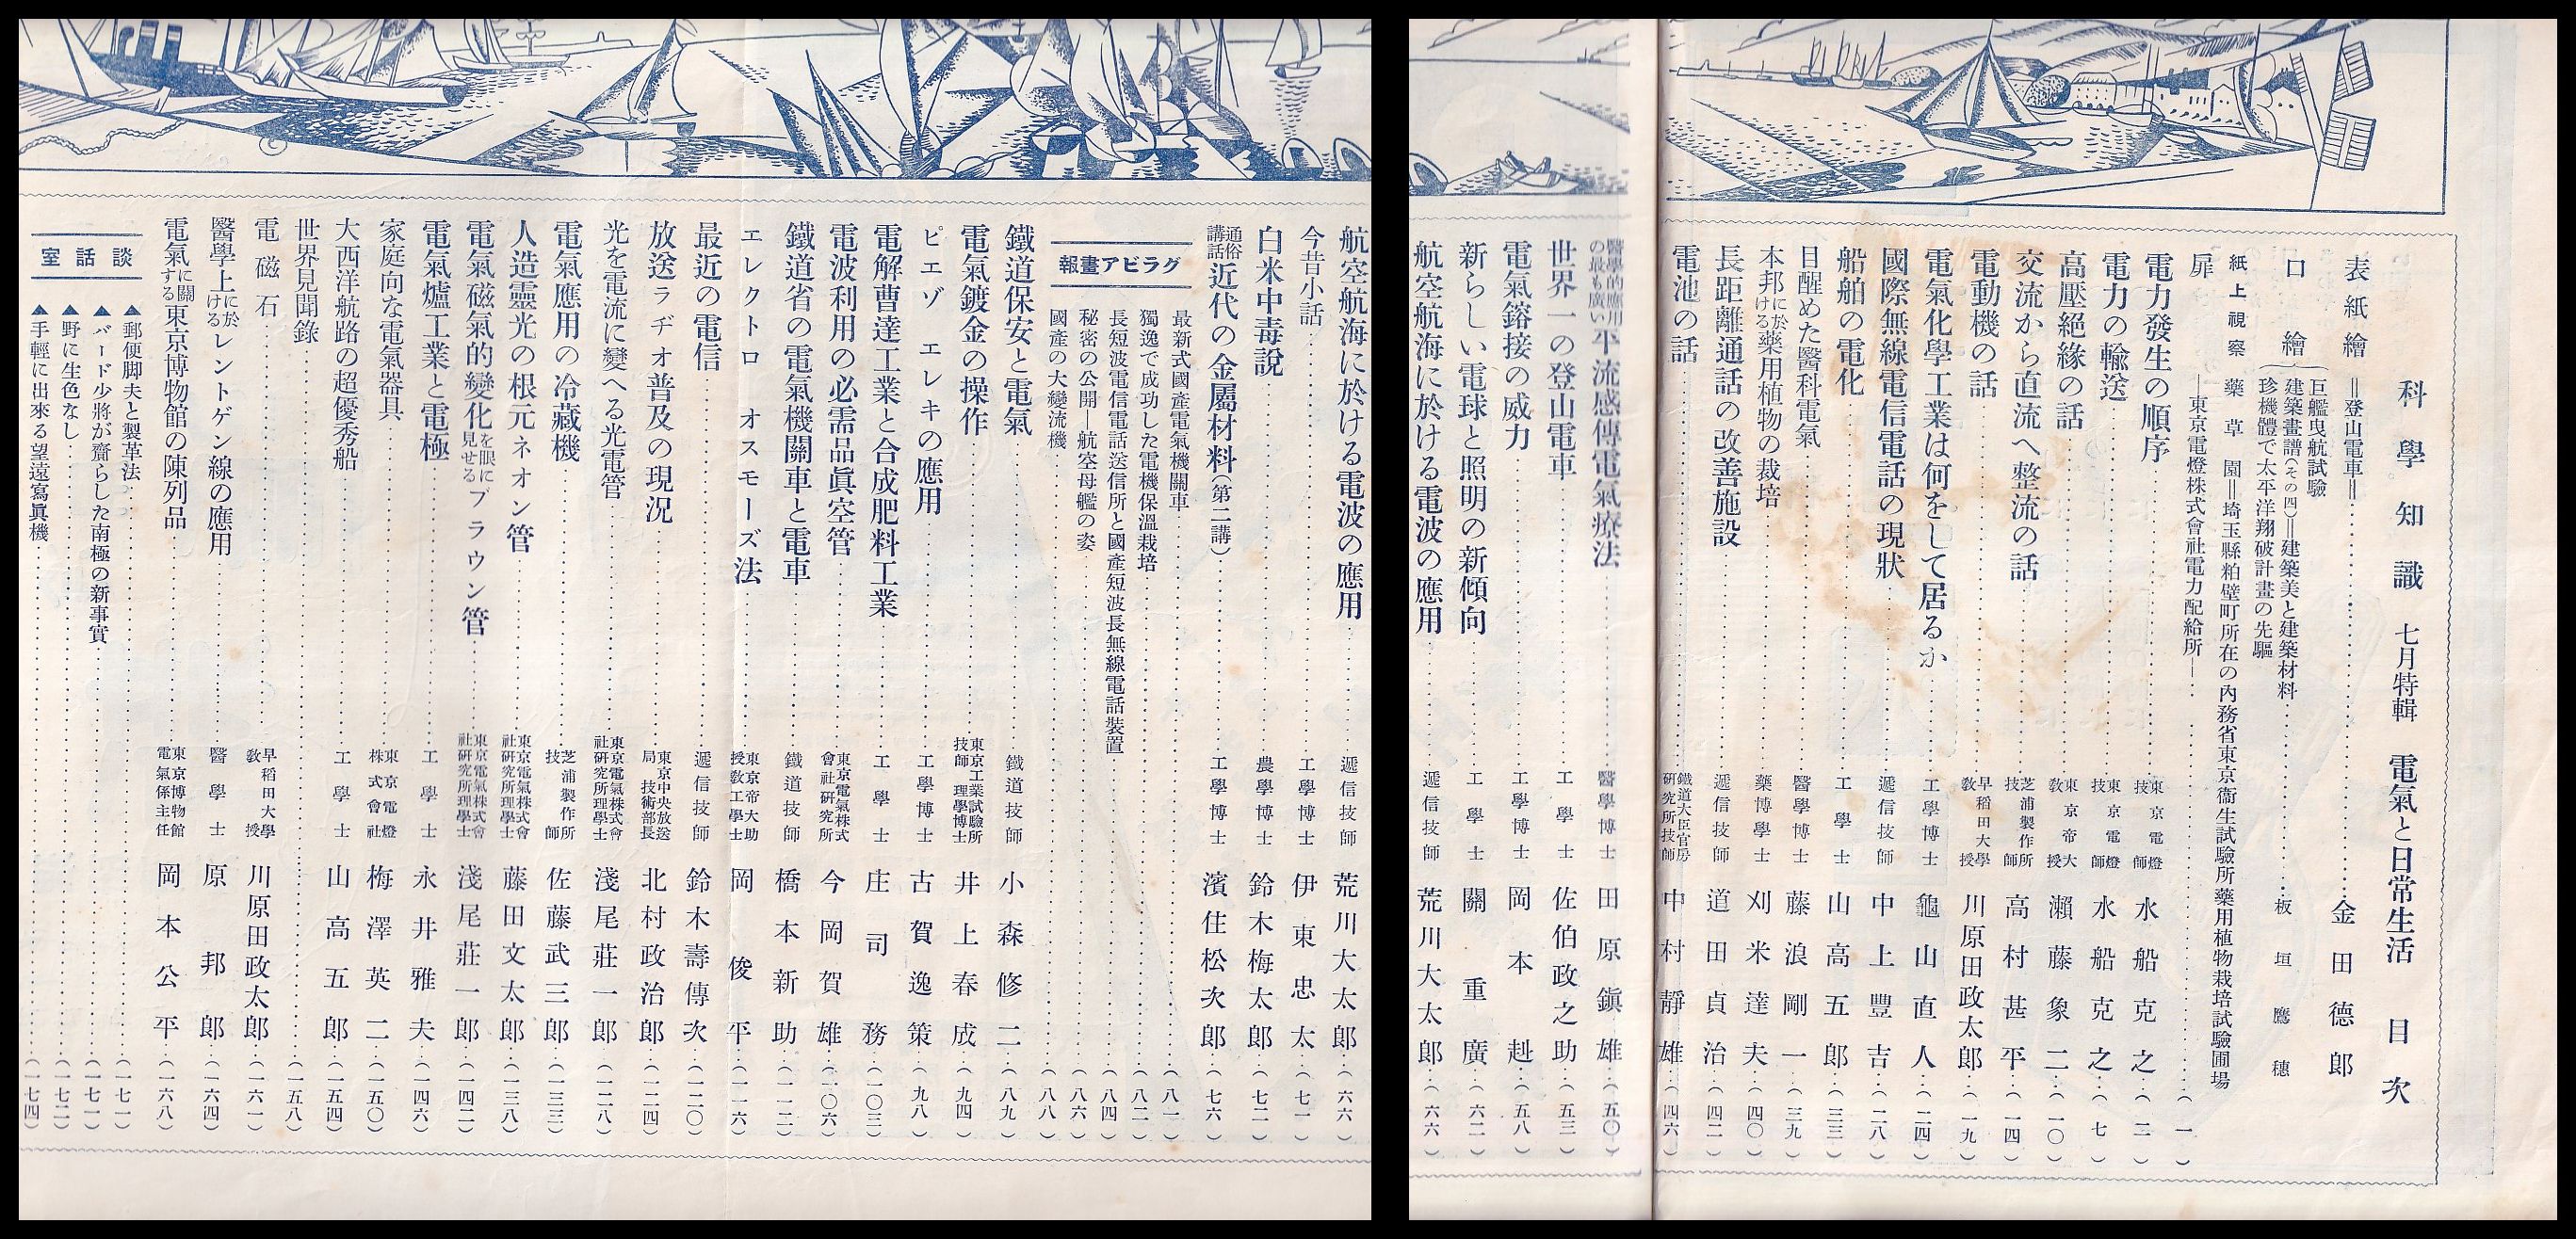 科學知識 七月特輯 電氣と日常生活 目次
表紙繪＝登山電車＝……金田德郎
口繪
巨艦曳航試驗
建築畫譜(その四)＝建築美と建築材料……板垣鷹穗
珍機體で太平洋翔破計畫の先驅
紙上視察 藥草園＝埼玉縣粕壁町所在の內務省東京衞生試驗所藥用植物栽培試驗圃場
扉―東京電燈株式會社電力配給所―……(一)
電力發生の順序……東京電燈技師 水船克之…(二)
電力の輸送……東京電燈技師 水船克之…(七)
高壓絕緣の話……東京帝大敎授 瀨藤象二…(一〇)
交流から直流へ整流の話……芝浦製作所技師 高村甚平…(一四)
電動機の話……早稻田大學敎授 川原田政太郎…(一九)
電氣化學工業は何をして居るか……工學博士 龜山直人…(二四)
國際無線電信電話の現狀……遞信技師 中上豐吉…(二八)
船舶の電化……工學士 山高五郎…(三三)
目醒めた醫科電氣……醫學博士 藤浪剛一…(三九)
本邦に於ける藥用植物の栽培……藥學博士 刈米達夫…(四〇)
長距離通話の改善施設……遞信技師 道田貞治…(四二)
電池の話……鐵道大臣官房硏究所技師 中村靜雄…(四六)
醫學的應用の最も廣い平流感傳電氣療法……醫學博士 田原鎭雄…(五〇)
世界一の登山電車……工學士 佐伯政之助…(五三)
電氣鎔接の威力……工學博士 岡本赳…(五八)
新らしい電球と照明の新傾向……工學士 關重廣…(六二)
航空航海に於ける電波の應用……遞信技師 荒川大太郎…(六六)
航空航海に於ける電波の應用……遞信技師 荒川大太郎…(六六)
今昔小話……工學士 伊東忠太…(七一)
白米中毒說……農學博士 鈴木梅太郎…(七二)
通俗講話 近代の金屬材料(第二講)……工學博士 濱住松次郎…(七六)
グラビア畫報
最新式國產電氣機關車……(八一)
獨逸で成功した電機保溫栽培……(八二)
長短波電信電話送信所と國產短波長無線電話裝置……(八四)
秘密の公開―航空母艦の姿……(八六)
國產の大變流機……(八八)
鐵道保安と電氣……鐵道技師 小森修二…(八九)
電氣鍍金の操作……東京工業試驗所技師 理學博士 井上春成…(九四)
ピエゾ エレキの應用……工學博士 古賀逸策…(九八)
電解曹達工業と合成肥料工業……工學士 庄司務…(一〇三)
電波利用の必需品眞空管……東京電氣株式會社硏究所 今岡賀雄…(一〇六)
鐵道省の電氣機關車と電車……鐵道技師 橋本新助…(一一二)
エレクトロ オスモーズ法……東京帝大助敎授工學士 岡俊平…(一一六)
最近の電信……遞信技師 鈴木壽傳次…(一二〇)
放送ラヂオ普及の現況……東京中央放送局技術部長 北村政治郎…(一二四)
光を電流に變へる光電管……東京電氣株式會社硏究所理學士 淺尾莊一郎…(一二八)
電氣應用の冷藏機……芝浦製作所技師 佐藤武三郎…(一三三)
人造靈光の根元ネオン管……東京電氣株式會社硏究所理學士 藤田文太郎…(一三八)
電氣磁氣的變化を眼に見せるブラウン管……東京電氣株式會社硏究所理學士 淺尾莊一郎…(一四二)
電氣爐工業と電極……工學士 永井雅夫…(一四六)
家庭向な電氣器具……東京電燈株式會社 梅澤英二…(一五〇)
大西洋航路の超優秀船……工學士 山高五郎…(一五四)
世界見聞錄……(一五八)
電磁石……早稻田大學敎授 川原田政太郎…(一六一)
醫學上に於けるレントゲン線の應用……醫學士 原邦郎…(一六四)
電氣に關する東京博物館の陳列品……東京博物館電氣係主任 岡本公平…(一六八)
談話室
▲郵便脚夫と製革法……(一七一)
▲バード少將が齎らした南極の新事實……(一七一)
▲野に生色なし……(一七二)
▲手輕に出來る望遠寫眞機……(一七四)